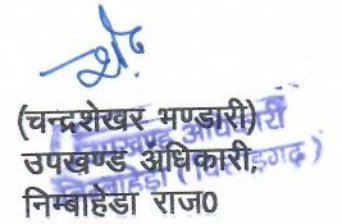 (चन्द्रशेखर भण्डारी)
उपखण्ड अधिकारी,
निम्बाहेडा राज0
उपखण्ड अधिकारी
निम्बाहेडा (चित्तौड़गढ़)